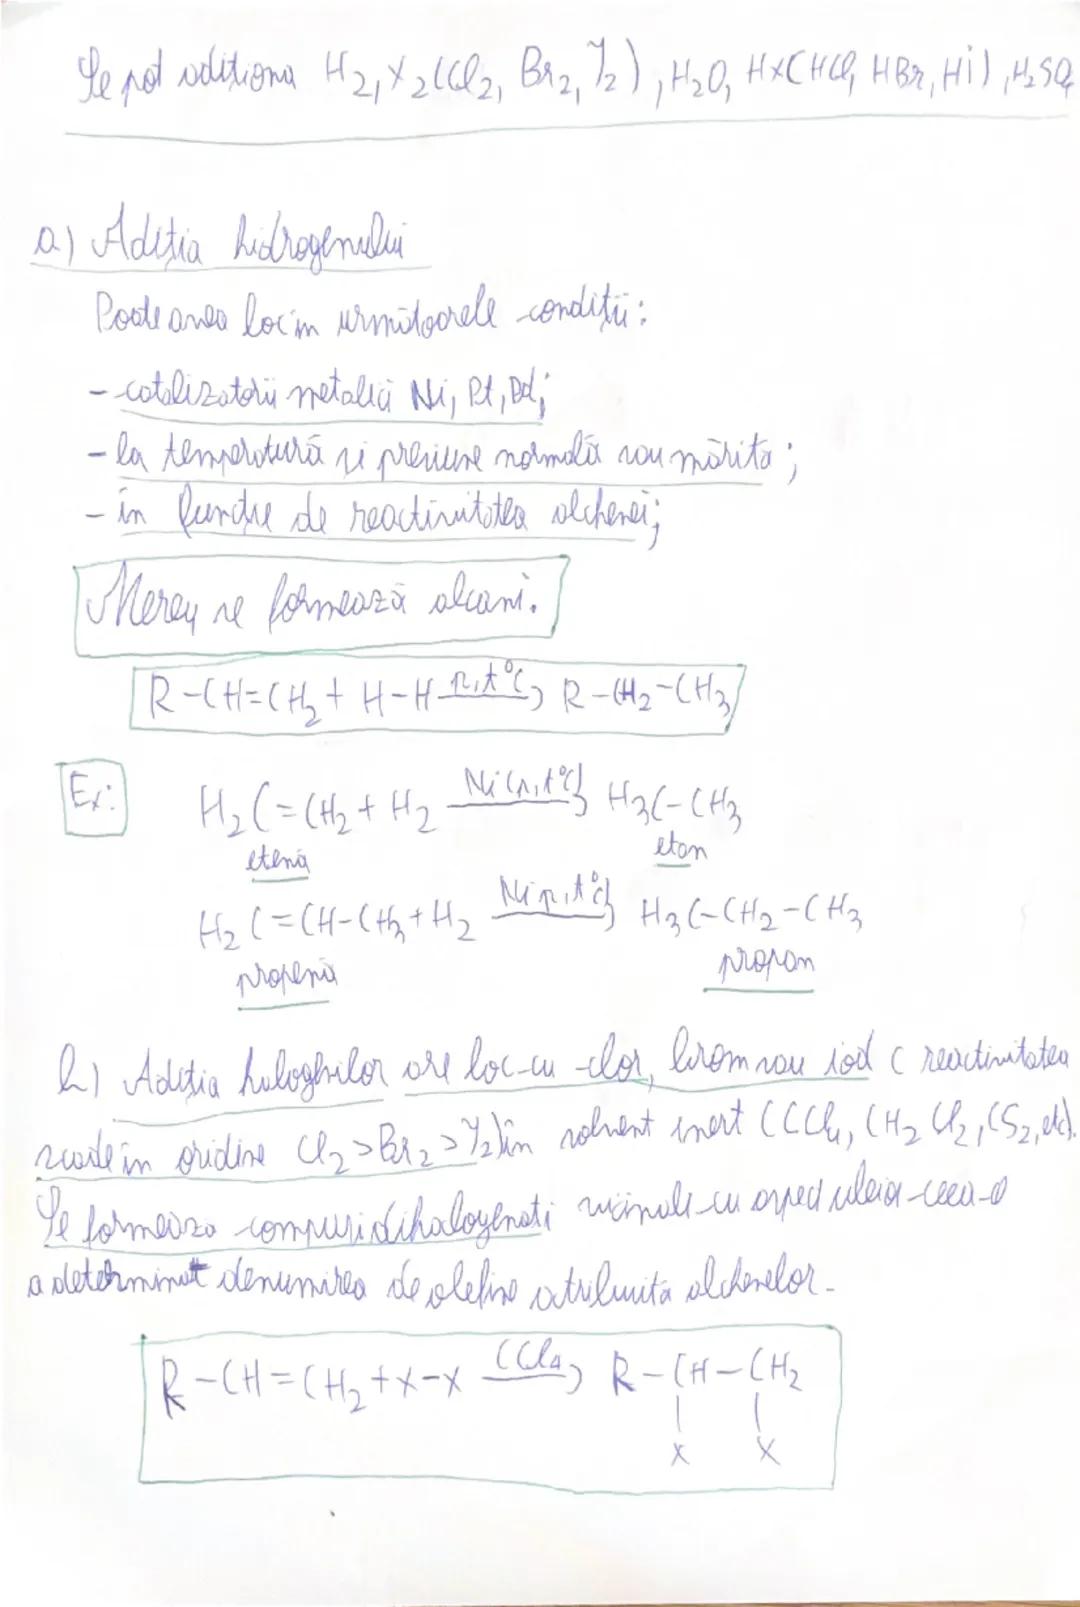 Se pot adiționa H2, X2 (Cl2, Br2, I2), H2O, HX (HCl, HBr, Hi), H2SO4
a) Adiția hidrogenului
Poate avea loc în următoarele condiții:
- catalizatorii metalici Ni, Pt, Pd;
- la temperatură și presiune normală sau mărita;
- în funcție de reactivitatea alchenei;
Mereu se formează alcani.
R-CH=CH2 + H-H p,t°C→ R-CH2-CH3
Ex:
H2C=CH2 + H2 Ni(p,t°C)→ H3C-CH3
etenă etan
H2C=CH-CH3 + H2 Ni p,t°C→ H3C-CH2-CH3
propenă propan
b) Adiția haloghnilor are loc cu clor, brom sau iod (reactivitatea
scade în oridine Cl2 > Br2 > I2) în solvent inert (CCl4, CH2Cl2, CS2, etc).
Se formeaza compusi dihalogenati vicinali cu aspect uleios ceea-a
a determinat denumirea de olefine atribuita alchenelor.
R-CH=CH2 + X-X CCl4→ R-CH-CH2
| |
X X